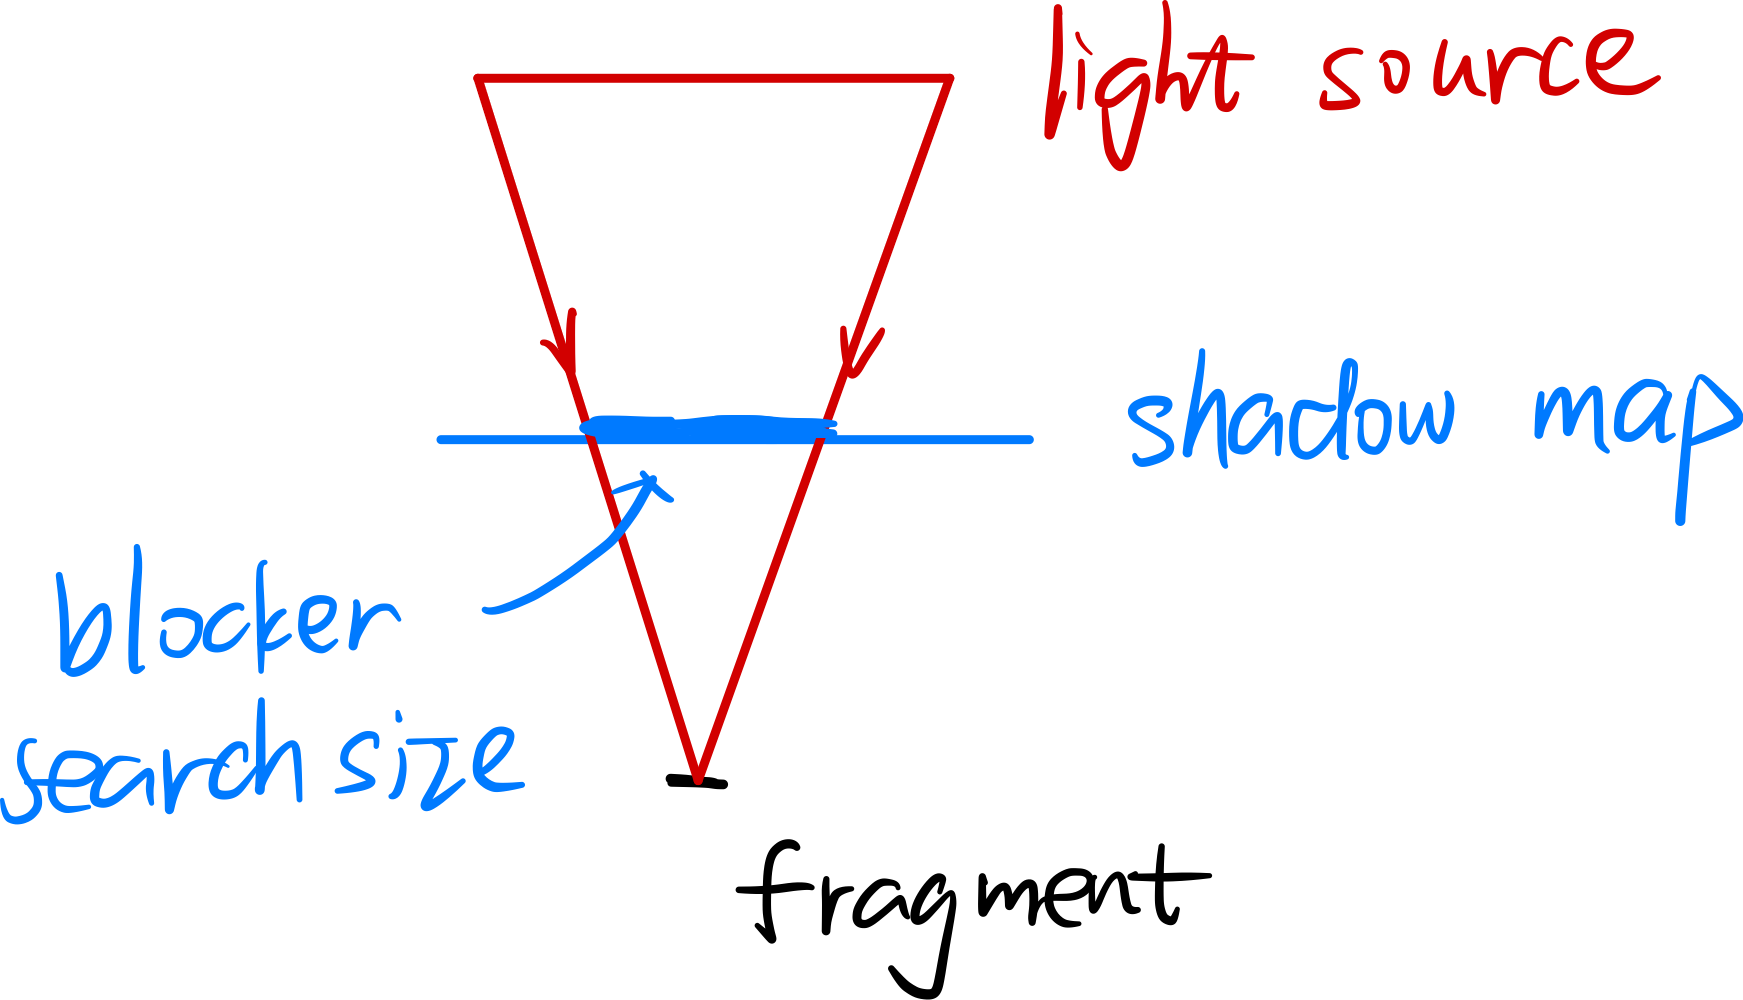 light source
shadow map
blocker
search size
fragment